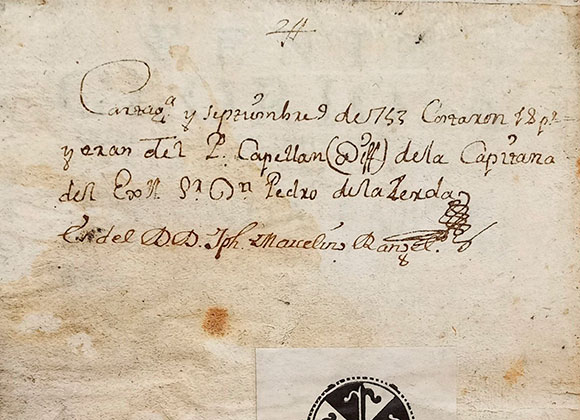 Cartagª y septiembre 9 de 1753 Costaron 18 pˢ
y eran del P. Capellan (Diff) de la Capitana
del Exᵐ Sʳ Dⁿ Pedro de la Zerda
Es del D D. Jph. Marcelino Rangel.